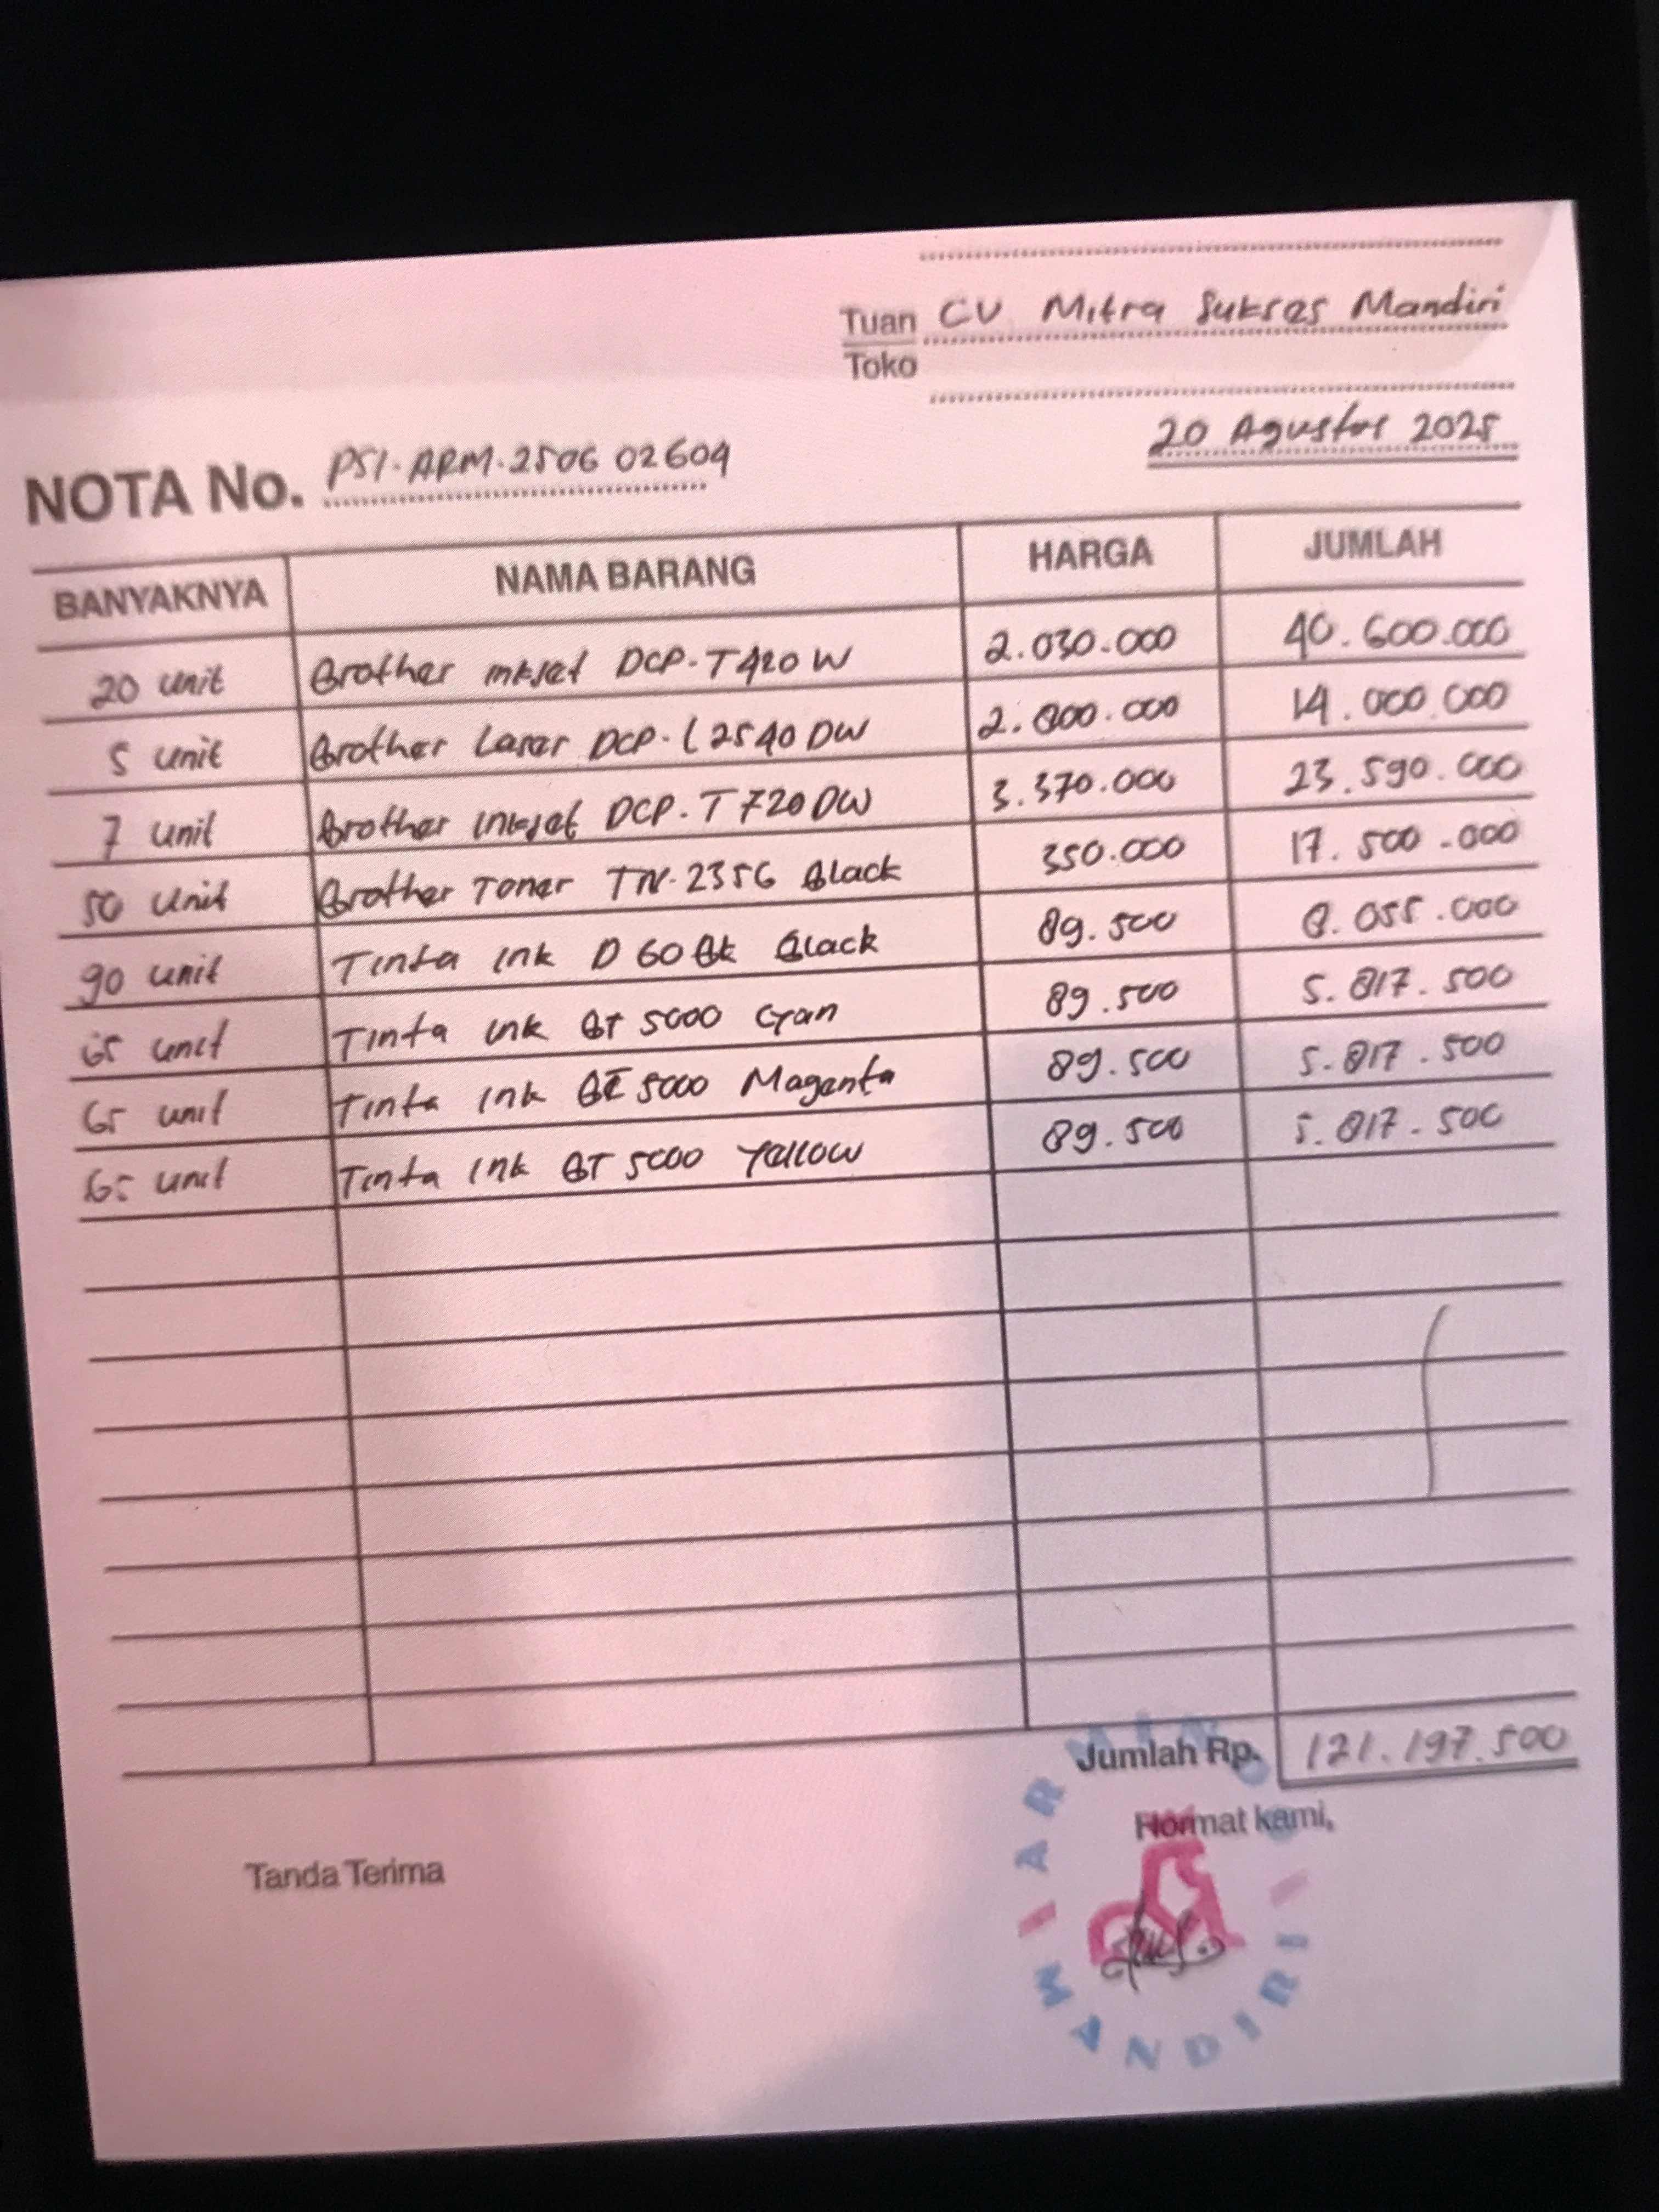 Tuan CV Mitra Sukses Mandiri
Toko
20 Agustus 2025
NOTA No. PSI-ARM-2506 02604
BANYAKNYA NAMA BARANG HARGA JUMLAH
20 unit Brother inkjet DCP-T420W 2.030.000 40.600.000
5 unit Brother Laser DCP-L2540DW 2.800.000 14.000.000
7 unit Brother inkjet DCP-T720DW 3.370.000 23.590.000
50 unit Brother Toner TN-2356 Black 350.000 17.500.000
90 unit Tinta ink D60Bk Black 89.500 8.055.000
65 unit Tinta ink BT 5000 Cyan 89.500 5.817.500
65 unit Tinta ink BT 5000 Magenta 89.500 5.817.500
65 unit Tinta ink BT 5000 Yellow 89.500 5.817.500
Jumlah Rp. 121.197.500
Hormat kami,
Tanda Terima
MANDIRI